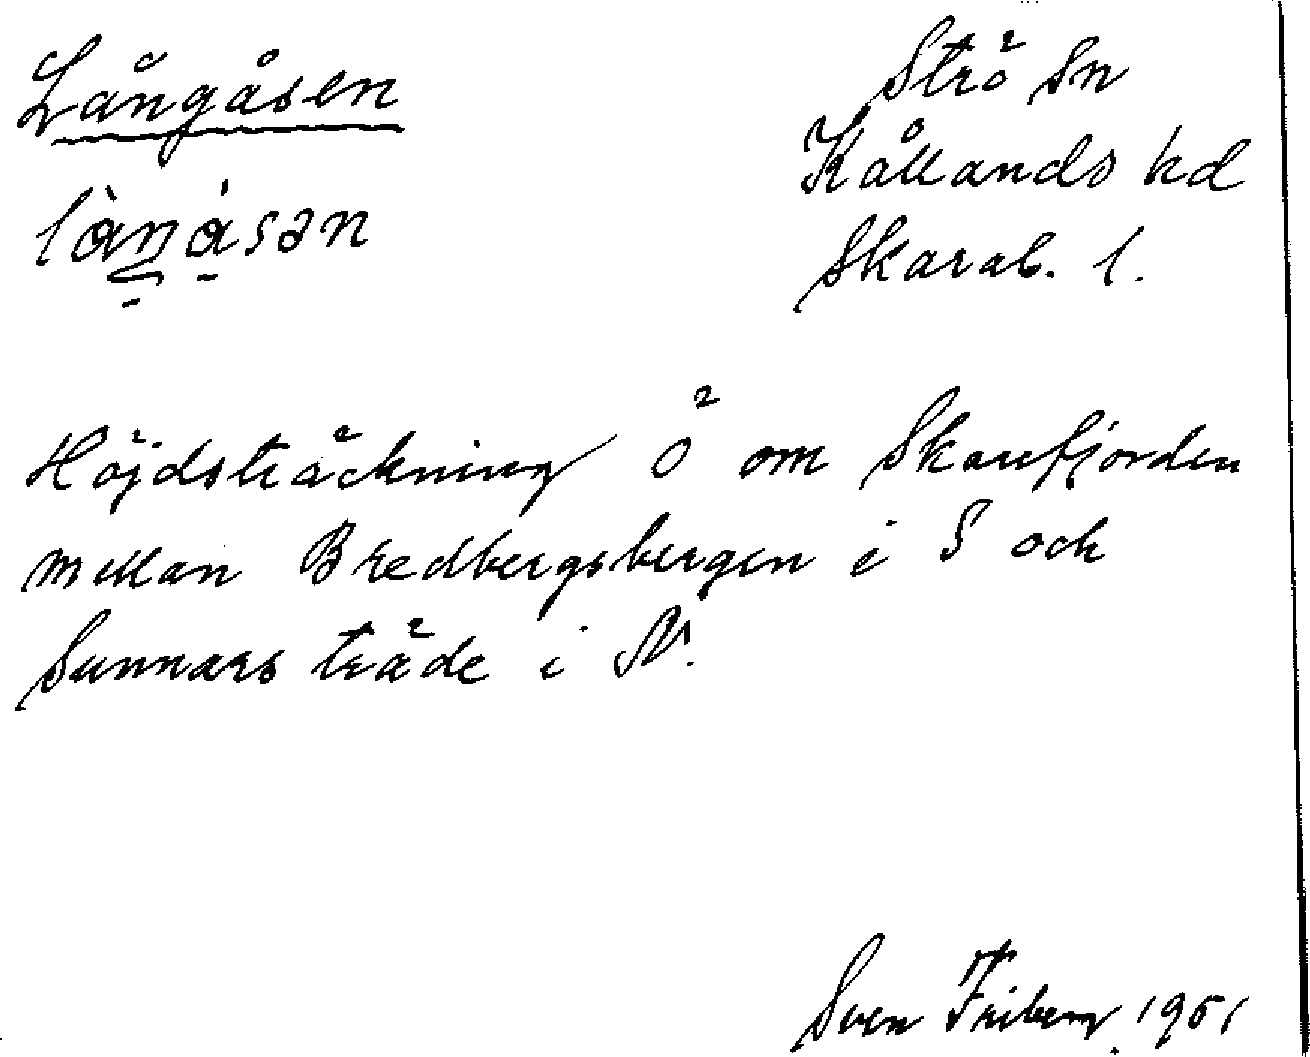 Långåsen
Strö Sn
Kållands hd
Skarab. l.
làŋásən
Höjdsträckning Ö om Skarefjorden
mellan Bredbergsbergen i S och
Sunnars träde i N.
Sven Friberg 1951